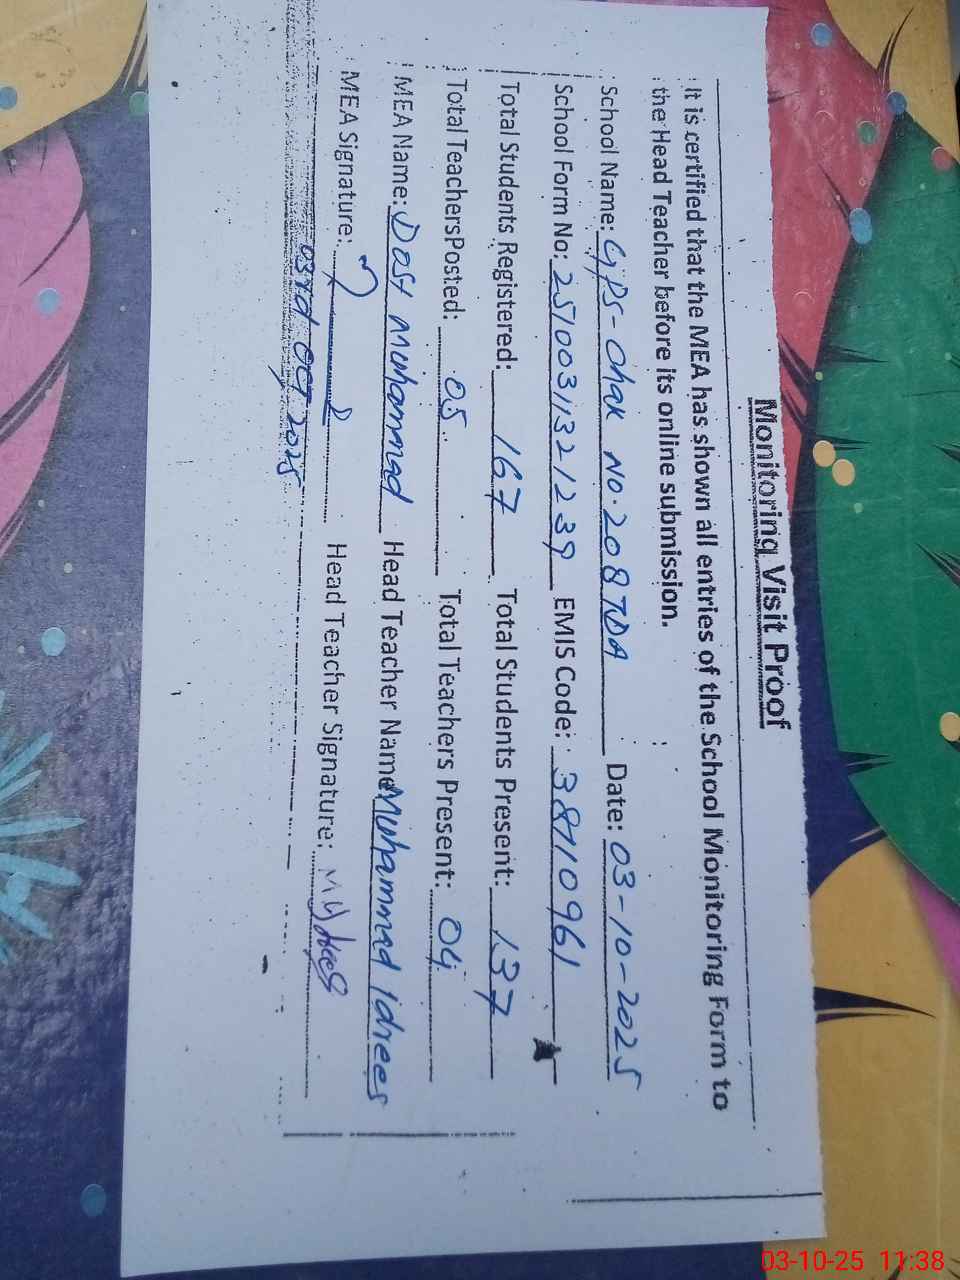 Monitoring Visit Proof
It is certified that the MEA has shown all entries of the School Monitoring Form to
the Head Teacher before its online submission.
School Name: GPS-Chak No. 208 TDA Date: 03-10-2025
School Form No: 2510031132 1239 EMIS Code: 38710961
Total Students Registered: 167 Total Students Present: 137
Total TeachersPosted: 05 Total Teachers Present: 04
MEA Name: Dost Muhammad Head Teacher Name Muhammad Idrees
MEA Signature: Head Teacher Signature:
03rd OCT 2025
03-10-25 11:38